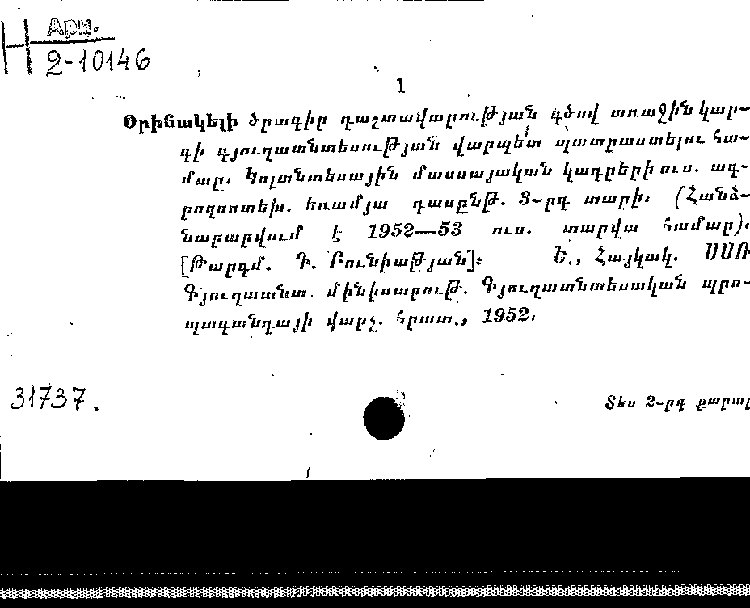 Арм.
2-10146
1
Օրինակելի ծրագիր դաշտավարության գծով առաջին կար-
գի գյուղատնտեսության վարպետ պատրաստելու հա-
մար. կոլտնտեսային մասսայական կադրերի ուս. ագ-
րոզոոտեխ. եռամյա դասընթ. 3-րդ տարի. (Հանձ-
նարարվում է 1952—53 ուս. տարվա համար).
[Թարգմ. Գ. Բունիաթյան]: Ե., Հայկակ. ՍՍՌ
Գյուղատնտ. մինիստրութ. Գյուղատնտեսական պրո-
պագանդայի վարչ. հրատ., 1952.
31737.
Տես 2-րդ քարտը